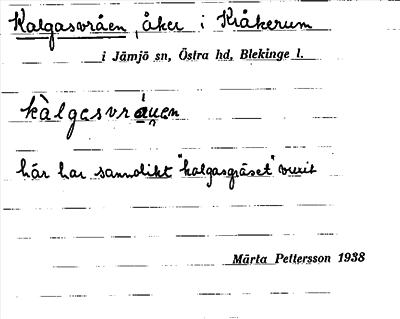 Kalgasvråen, åker i Kråkerum
i Jämjö sn, Östra hd, Blekinge l.
kàlgasvråu̯en
här har sannolikt "kalgasgräset" vuxit
Märta Pettersson 1938